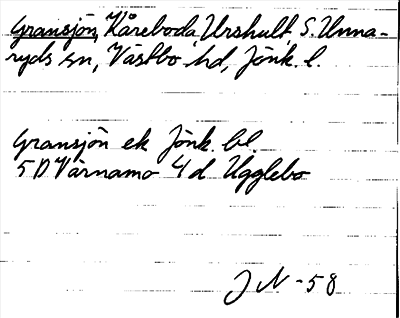 Gransjön, Kåreboda, Urshult, S. Unna-
ryds sn, Västbo hd, Jönk. l.
Gransjön ek Jönk. bl.
5 D Värnamo 4 d Ugglebo
J N - 58